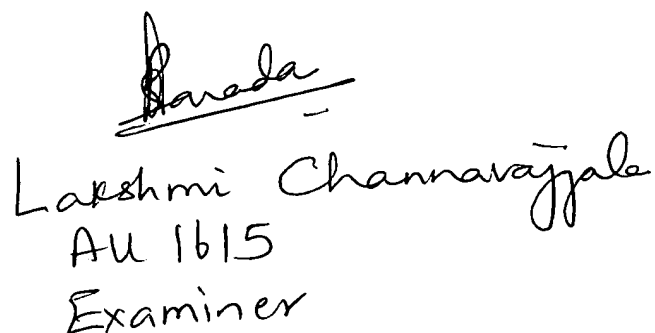 Sarada
Lakshmi Channavajjala
AU 1615
Examiner